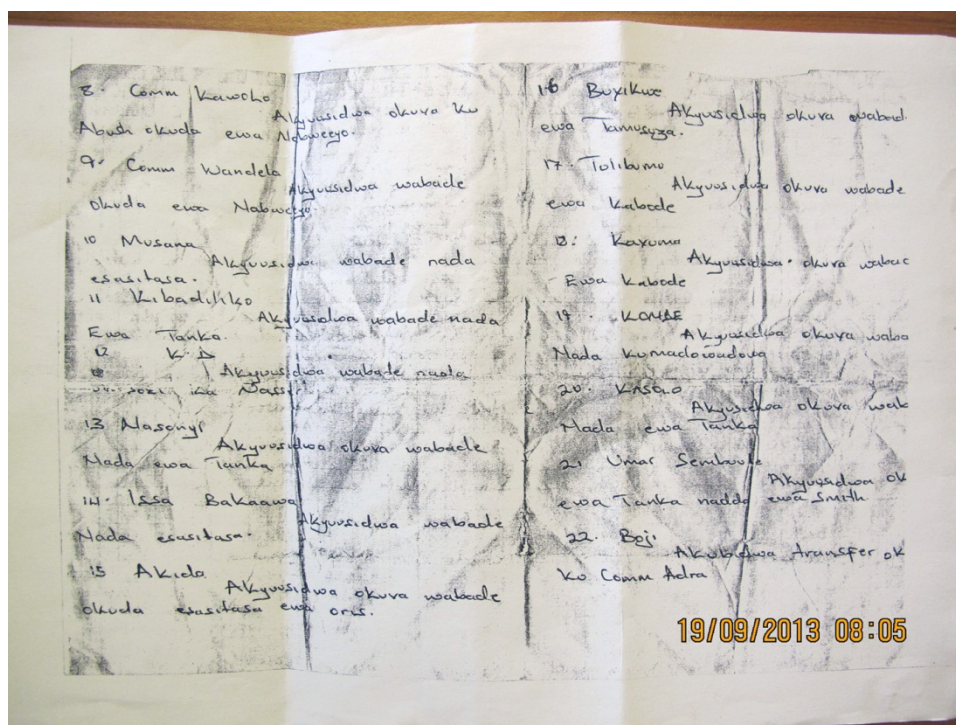 8. Comm Kawcho
Akyusidwa okuva ku
Abush okuda ewa Nabweeyo.
9. Comm Wandela
Akyuusidwa wabade
okuda ewa Nabweeyo.
10 Musana
Akyuusidwa wabade nada
esasitasa.
11 Kibadikiko
Akyuusidwa wabade nada
Ewa Tanka.
12 K.D
Akyuusidwa wabade nada
ka Nassir
13 Nasonyi
Akyuusidwa okuva wabade
Nada ewa Tanka
14. Issa Bakaawa
Akyuusidwa wabade
Nada esasitasa.
15 Akida
Akyuusidwa okuva wabade
okuda esasitasa ewa oris.
16 Buyikwe
Akyuusidwa okuva wabad
ewa Tamusuza.
17. Tulibumo
Akyuusidwa okuva wabade
ewa Kabode
18. Kayuma
Akyuusidwa. okuva wabac
Ewa Kabode
19. KOMAE
Akyuusidwa okuva waba
Nada Kumadowadowa
20. Knsao
Akyusidwa okuva wab
Nada ewa Tanka
21 Umar Sembuule
Akyuusidwa ok
ewa Tanka nadda ewa Smith
22. Boji
Akubidwa transfer ok
ku Comm Adra
19/09/2013 08:05